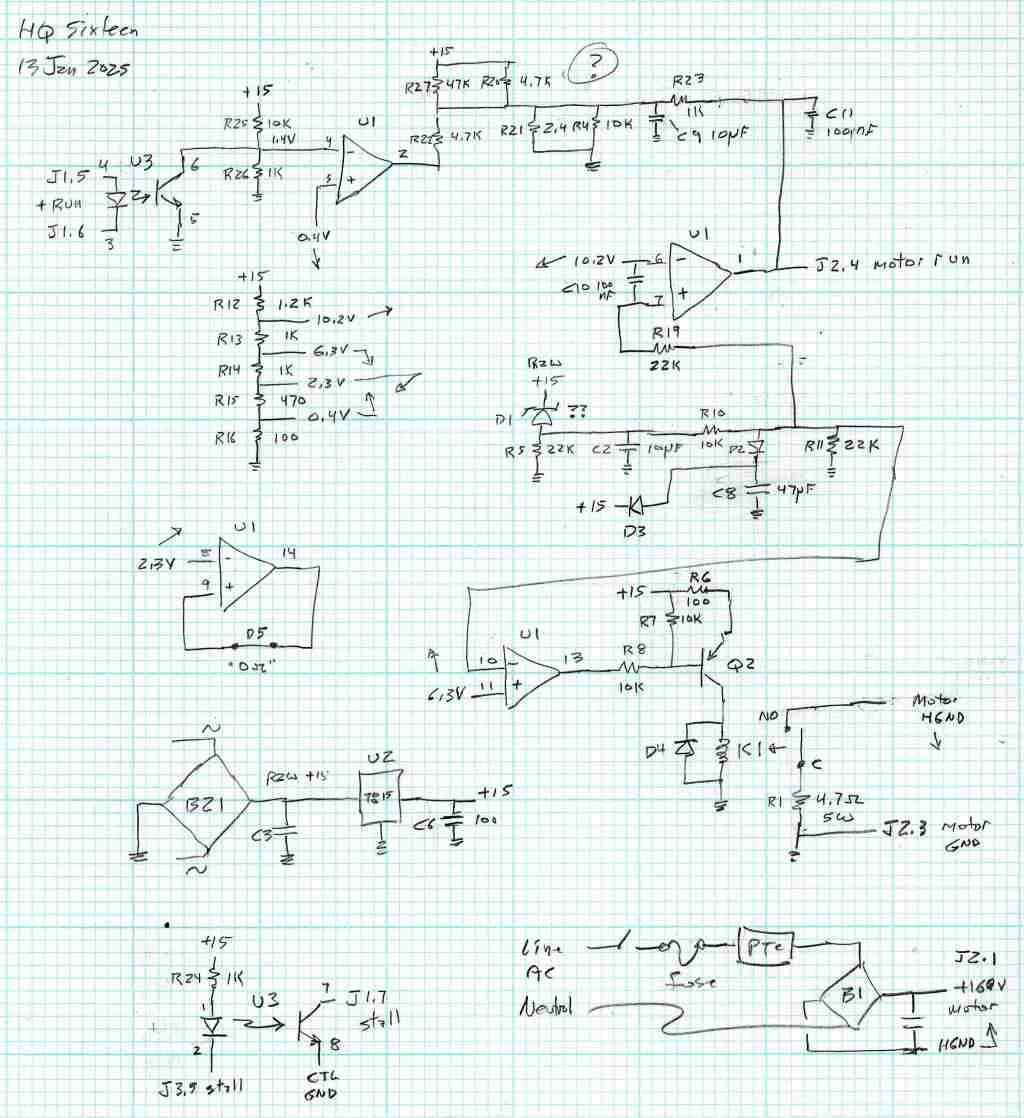 HQ Sixteen
13 Jan 2025
+15
R27 47K
4.7K
?
R23
1K
C11
100nF
C9 10µF
R21 2.4 R4 10K
R22 4.7K
+15
R25 10K
1.4V
R26 1K
U1
4 -
5 +
2
0.4V
J1.5 4
U3
6
+RUN
J1.6
3
5
+15
R12 1.2K
10.2V
R13 1K
6.3V
R14 1K
2.3V
R15 470
0.4V
R16 100
U1
10.2V 6 -
7 +
1
J2.4 motor run
C10 100 nF
R19
22K
Raw
+15
D1 ??
R5 22K
C2 10µF
R10
10K
D2
R11 22K
C8 47µF
+15
D3
U1
2.3V 8 -
9 +
14
D5
"0Ω"
+15
R6
100
R7 10K
U1
10 -
6.3V 11 +
13
R8
10K
Q2
D4
K1
NO
C
Motor
HGND
R1 4.7Ω
5W
J2.3 Motor
GND
~
BZ1
~
Raw +15
C3
U2
7815
C6 100
+15
+15
R24 1K
1
U3
2
J3.9 stall
7
J1.7
stall
8
CTL
GND
Line
AC
Neutral
fuse
PTC
B1
J2.1
+160V
motor
HGND